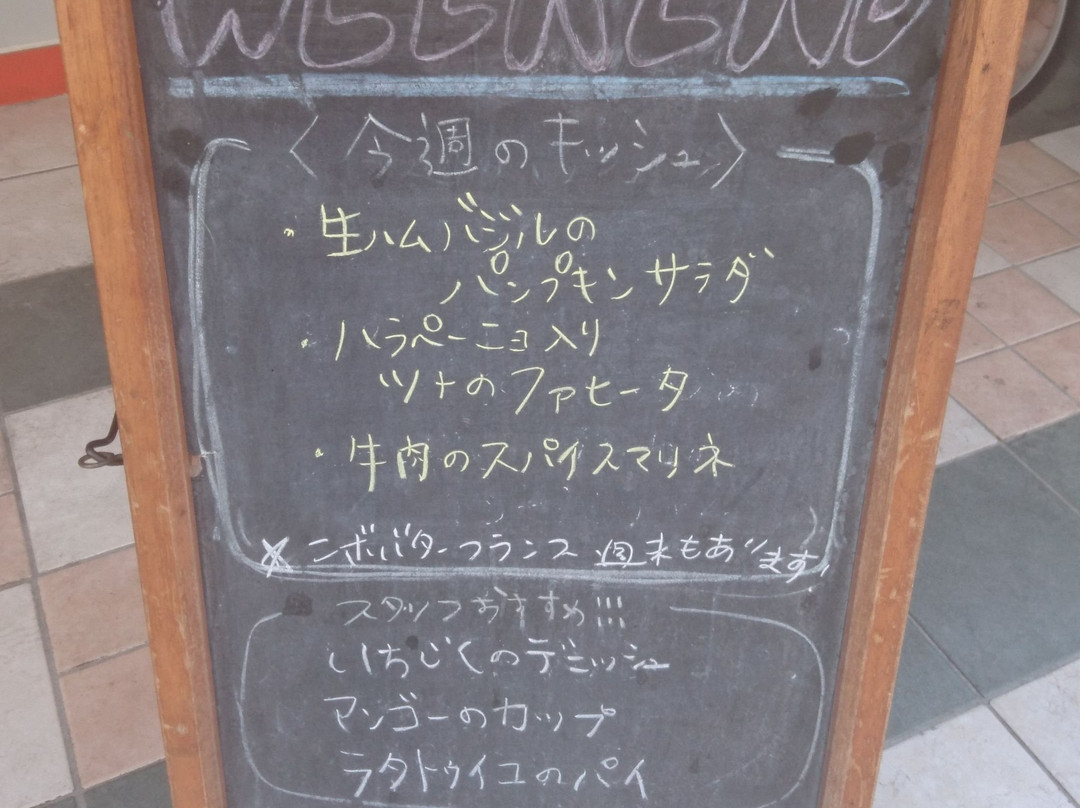 WEEKEND
〈今週のキッシュ〉
・生ハムバジルの
パンプキンサラダ
・ハラペーニョ入り
ツナのファヒータ
・牛肉のスパイスマリネ
※ニボバターフランス 週末もあります。
スタッフおすすめ!!!
いちじくのデニッシュ
マンゴーのカップ
ラタトゥイユのパイ